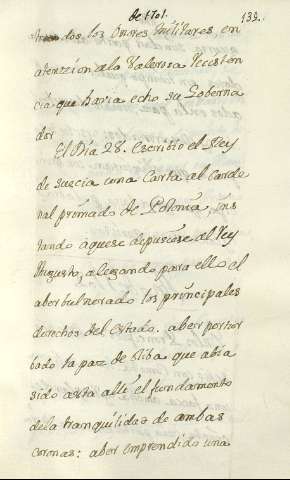 de 1701.
139.
dos los onores militares, en
atenzion a la Valerosa Resisten
cia que havia echo su Goberna
dor
El Dia 28. Escribio el Rey
de suecia una Carta al Carde
nal primado de Polonia, ins
tando aquese depusiese al Rey
Augusto, alegando para ello el
aber bulnerado los principales
derechos del Estado. aber pertur
bado la paz de oliba que abia
sido asta alli el fundamento
de la tranquilidad de ambas
coronas: aber emprendido una